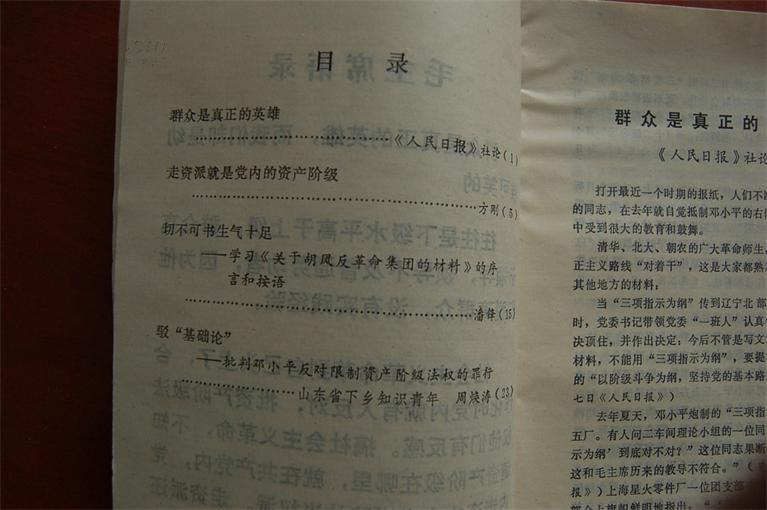 目 录
群众是真正的英雄
《人民日报》社论(1)
走资派就是党内的资产阶级
方刚(5)
切不可书生气十足
——学习《关于胡风反革命集团的材料》的序
言和按语
潘锋(15)
驳“基础论”
——批判邓小平反对限制资产阶级法权的罪行
山东省下乡知识青年 周焕涛(23)
群众是真正的
《人民日报》社论
打开最近一个时期的报纸，人们不
的同志，在去年就自觉抵制邓小平的右倾
中受到很大的教育和鼓舞。
清华、北大、朝农的广大革命师生，
正主义路线“对着干”，这是大家都熟
其他地方的材料：
当“三项指示为纲”传到辽宁北部
时，党委书记带领党委“一班人”认真
决顶住，并作出决定：今后不管是写文
材料，不能用“三项指示为纲”，要提
的“以阶级斗争为纲，坚持党的基本路
七日《人民日报》）
去年夏天，邓小平炮制的“三项指
五厂。有人问二车间理论小组的一位同
示为纲’到底对不对？”这位同志果断
这和毛主席历来的教导不符合。”（
报》）上海星火零件厂一位团支部